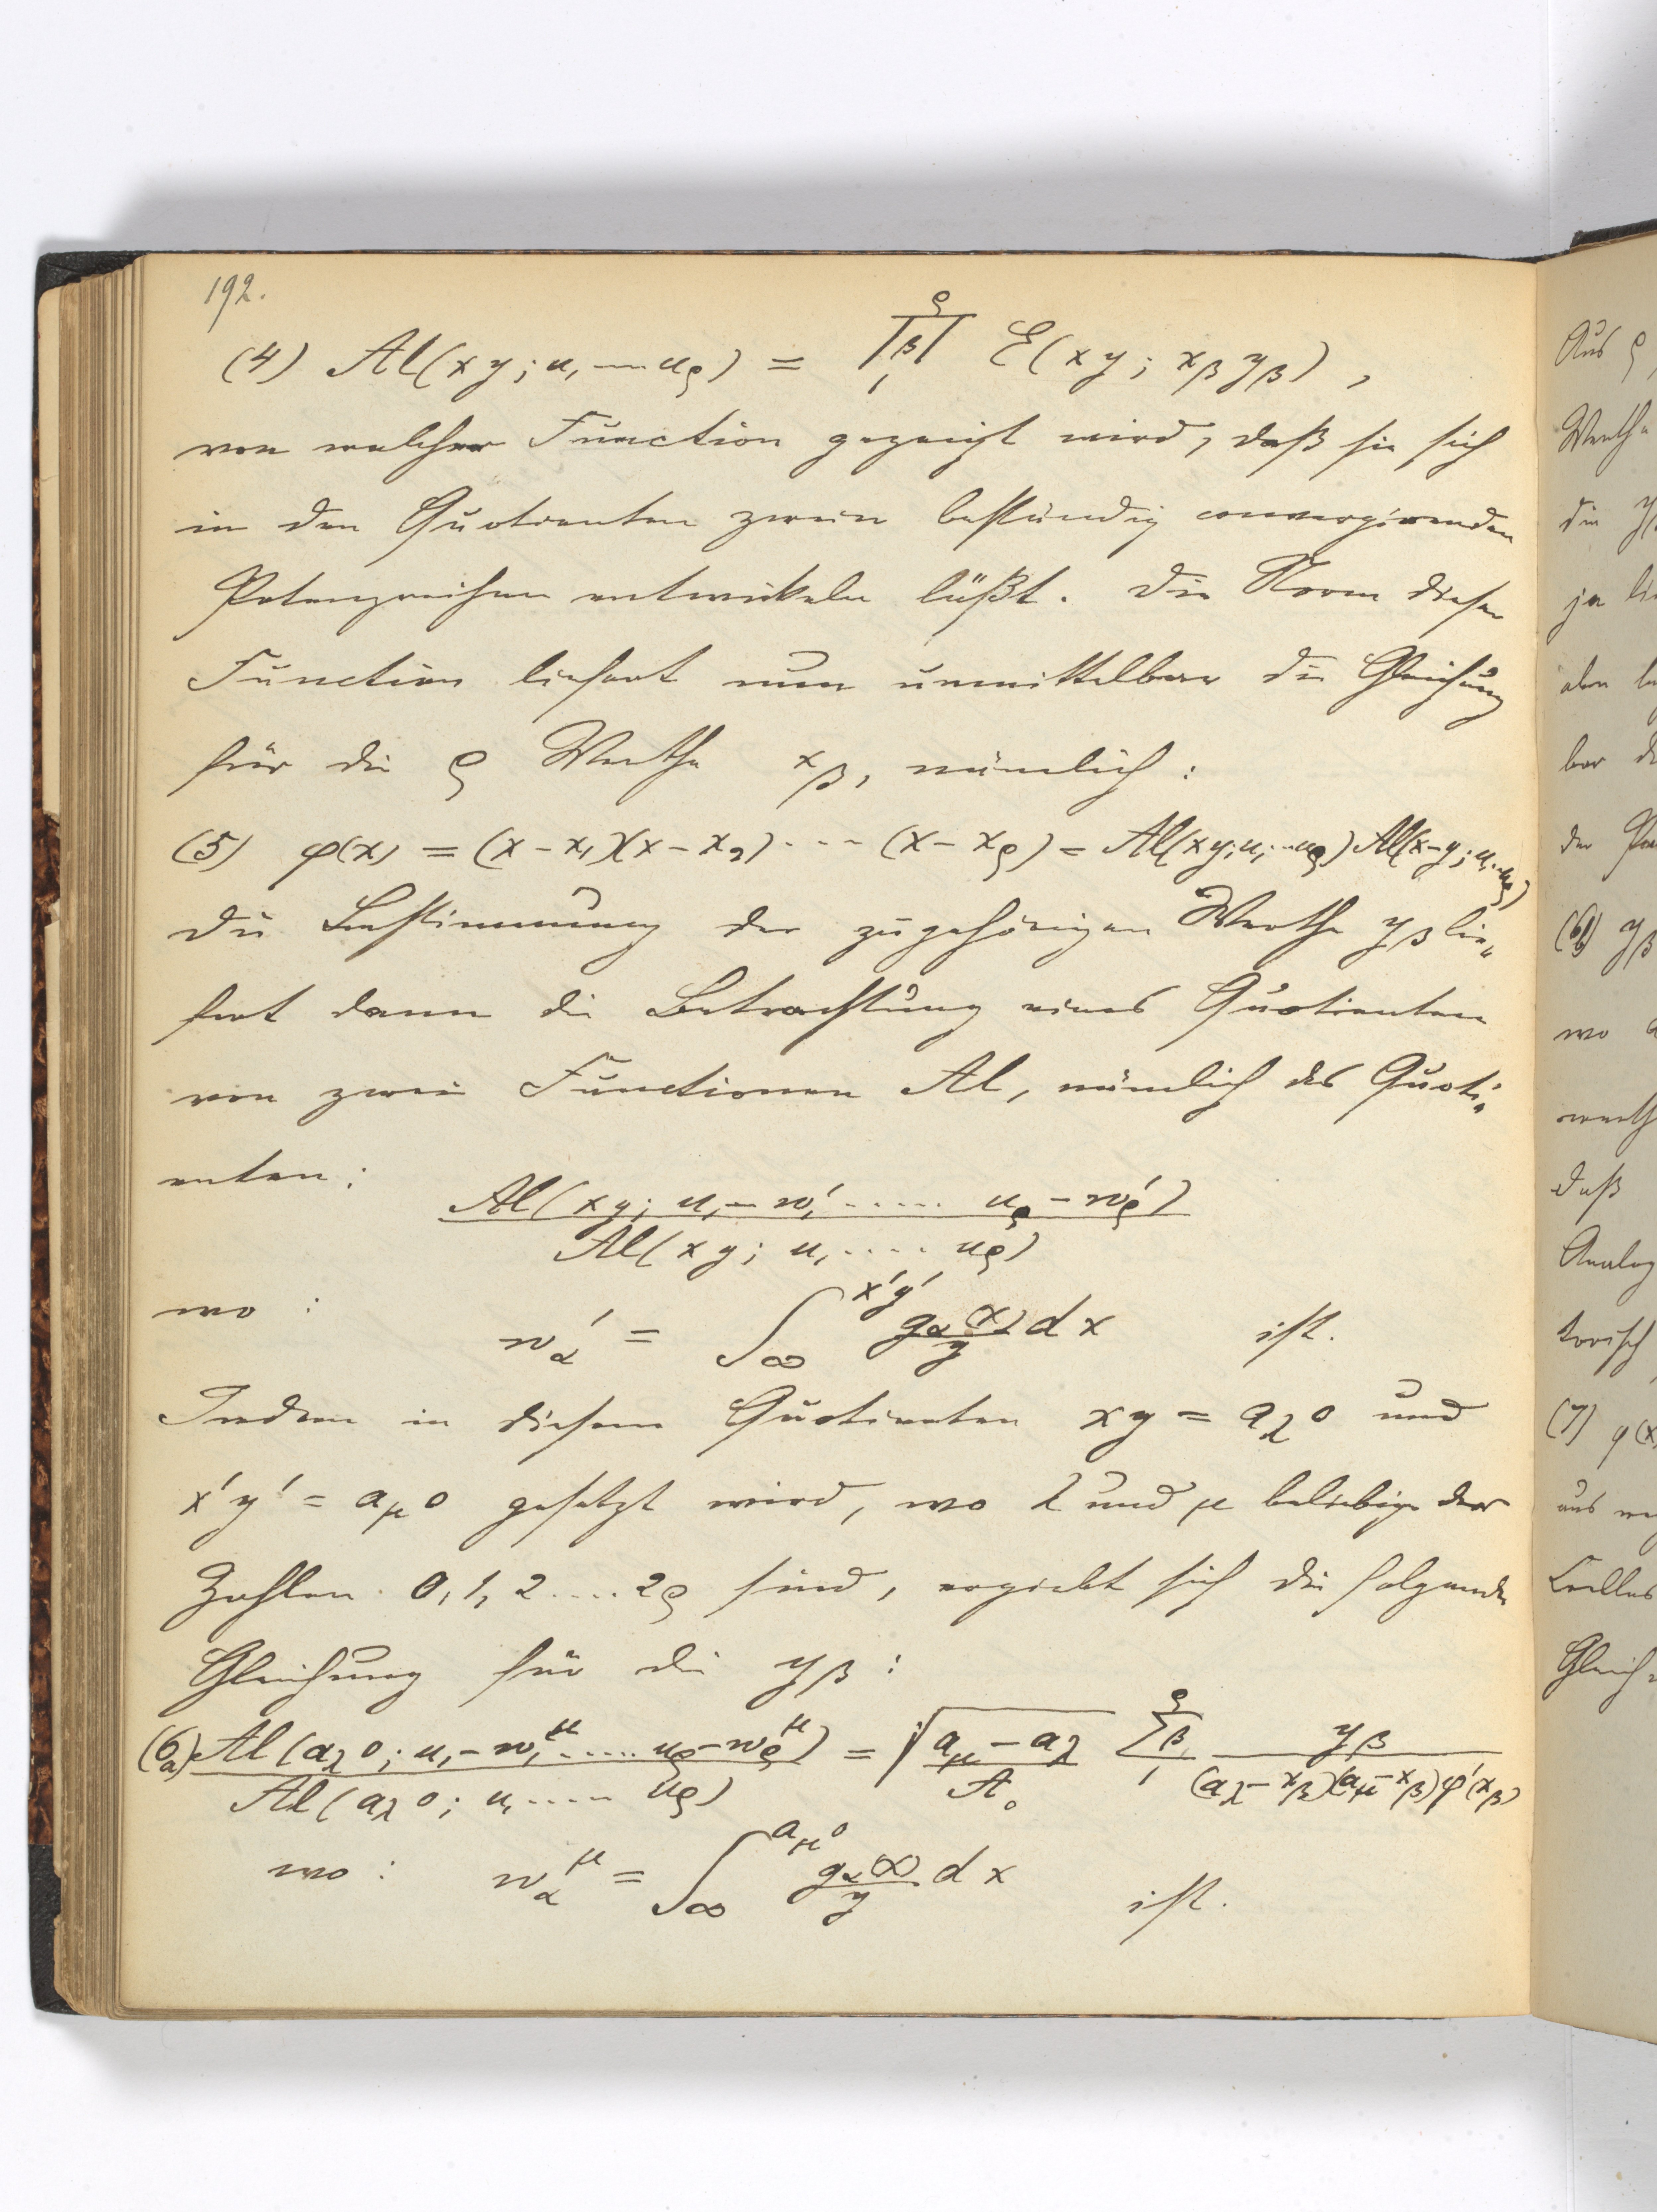 192.
(4) Al(xy; u₁ .... u_ρ) = ∏_{β=1}^{ρ} E(xy; x_β y_β),
von welcher Function gezeigt wird, daß sie sich
in den Quotienten zweier beständig convergirenden
Potenzreihen entwickeln läßt. Die Norm dieser
Function liefert nun unmittelbar die Gleichung
für die ρ Werthe x_β, nämlich:
(5) φ(x) = (x – x₁)(x – x₂) ···· (x – x_ρ) = Al(xy; u₁ ... u_ρ) Al(x –y; u₁ ... u_ρ)
Die Bestimmung der zugehörigen Werthe y_β lie„
fert dann die Betrachtung eines Quotienten
von zwei Functionen Al, nämlich des Quoti„
enten:
Al(xy; u₁ – w₁′ ..... u_ρ – w_ρ′)
Al(xy; u₁ .... u_ρ)
wo : w_α′ = ∫_∞^{x′y′} g_α(x)/y dx ist.
Indem in diesem Quotienten xy = a_λ 0 und
x′y′ = a_μ 0 gesetzt wird, wo λ und μ beliebige der
Zahlen 0, 1, 2 .... 2ρ sind, ergiebt sich die folgende
Gleichung für die y_β :
(6a) Al(a_λ 0; u₁ – w₁^μ ..... u_ρ – w_ρ^μ) / Al(a_λ 0; u₁ ..... u_ρ) = √((a_μ – a_λ)/A₀) ∑_{β=1}^{ρ} y_β / ((a_λ – x_β)(a_μ – x_β) φ′(x_β))
wo : w_α^μ = ∫_∞^{a_μ 0} g_α(x)/y dx ist.
Aus ρ
Werthe
die
ja
aber
bar
der
(6b) y_β
wo
werth
daß
Analog
torisch
(7) φ(x)
aus
Crelles
Gleich